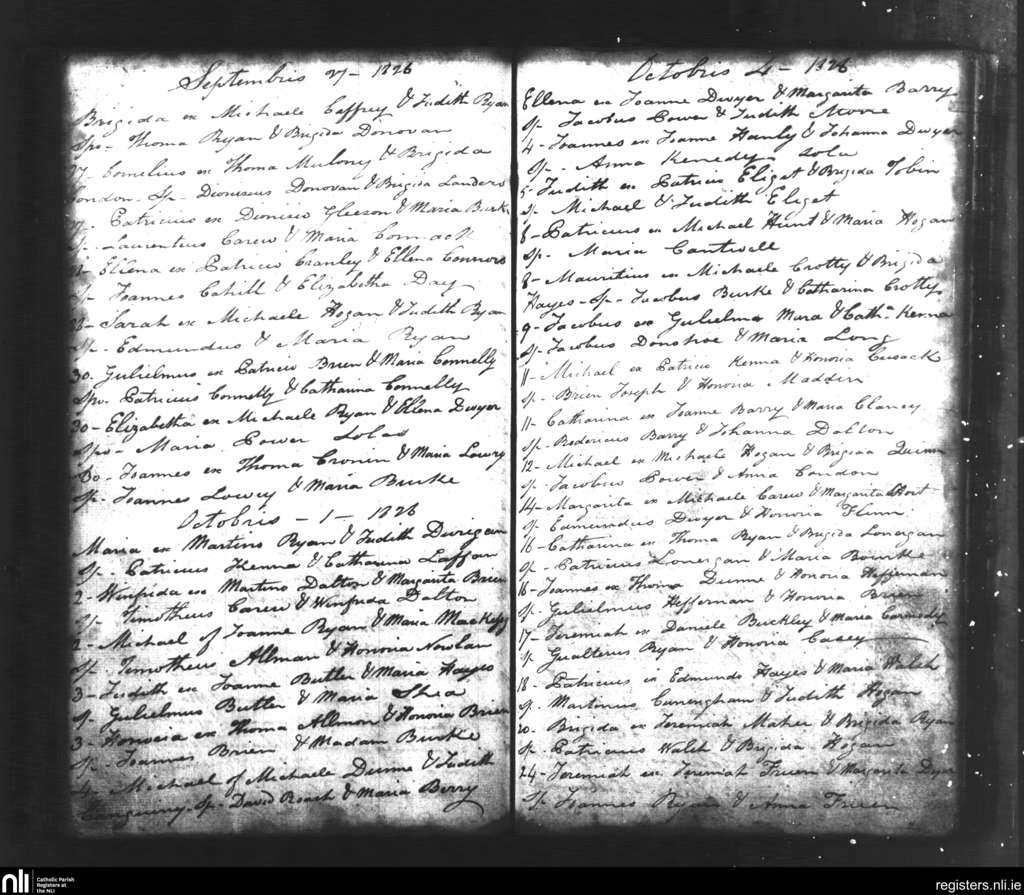 Septembris 27 - 1826
Brigida ex Michaele Caffrey & Judith Ryan
Spo - Thoma Ryan & Brigida Donovan
27 Cornelius ex Thoma Mulony & Brigida
London - Sp - Dionisius Donovan & Brigida Landers
Patricius ex Dionicio Gleeson & Maria Burke
Sp - Laurentius Carew & Maria Cormack
Ellena ex Patricio Cranley & Ellena Connors
Sp - Joannes Cahill & Elizabetha Day
28 - Sarah ex Michaele Hogan & Judith Ryan
Sp - Edmundus & Maria Ryan
30. Gulielmus ex Patricio Brien & Maria Connelly
Spo. Patricius Connelly & Catharina Connelly
30 - Elizabetha ex Michaele Ryan & Ellena Dwyer
Spo - Maria Power Solas
30 - Joannes ex Thoma Cronin & Maria Lowry
Sp - Joannes Lowry & Maria Burke
Octobris - 1 - 1826
Maria ex Martino Ryan & Judith Dwigan
Sp - Patricius Kenna & Catharina Laffan
2 - Winifrida ex Martino Dalton & Margarita Brien
Sp - Timotheus Carew & Winifrida Dalton
2 - Michael of Joanne Ryan & Maria Mackessy
Sp - Timotheus Allman & Honoria Nowlan
3 - Judith ex Joanne Butler & Maria Hayes
Sp - Gulielmus Butler & Maria Shea
3 - Honoria ex Thoma Allmon & Honoria Brien
Sp - Joannes Brien & Madam Burke
4 - Michael of Michaele Dunne & Judith
Sp - David Roach & Maria Berry
Octobris 4 - 1826
Ellena ex Joanne Dwyer & Margarita Barry
Sp - Jacobus Power & Judith Moore
4 - Joannes ex Joanne Hanly & Johanna Dwyer
Sp - Anna Kenedy sola
5 - Judith ex Patricio Eligat & Brigida Tobin
Sp - Michael & Judith Eligat
6 - Patricius ex Michael Hunt & Maria Hogan
Sp - Maria Cantwell
8 - Mauritius ex Michaele Crotty & Brigida
Hayes - Sp - Jacobus Burke & Catharina Crotty
9 - Jacobus ex Gulielmo Mara & Cath.a Kenna
Sp - Jacobus Donohoe & Maria Long
11 - Michael ex Patricio Kenna & Honoria Cusack
Sp - Brien Joseph & Honoria Madden
11 - Catharina ex Joanne Barry & Maria Clancy
Sp - Redericus Barry & Johanna Dalton
12 - Michael ex Michaele Hogan & Brigida Quinn
Sp - Jacobus Power & Anna Condon
14 - Margarita ex Michaele Carew & Margarita Hort
Sp - Edmundus Dwyer & Honoria Flinn
16 - Catharina ex Thoma Ryan & Brigida Lonagan
Sp - Patricius Lonergan & Maria Bourke
16 - Joannes ex Thoma Dunne & Honoria Heffernan
Sp - Gulielmus Heffernan & Honoria Brien
17 - Jeremiah ex Daniele Buckley & Maria Carmody
Sp Gualterus Ryan & Honoria Casey
18 - Patricius ex Edmundo Hayes & Maria Walsh
Sp - Martinus Cunengham & Judith Hogan
20 - Brigida ex Jeremiah Maher & Brigida Ryan
Sp - Patricius Walsh & Brigida Hogan
24 - Jeremiah ex Jeremiah Fruen & Margarita Dwyer
Sp - Joannes Ryan & Anna Fruen
nli
Catholic Parish
Registers at
the NLI
registers.nli.ie